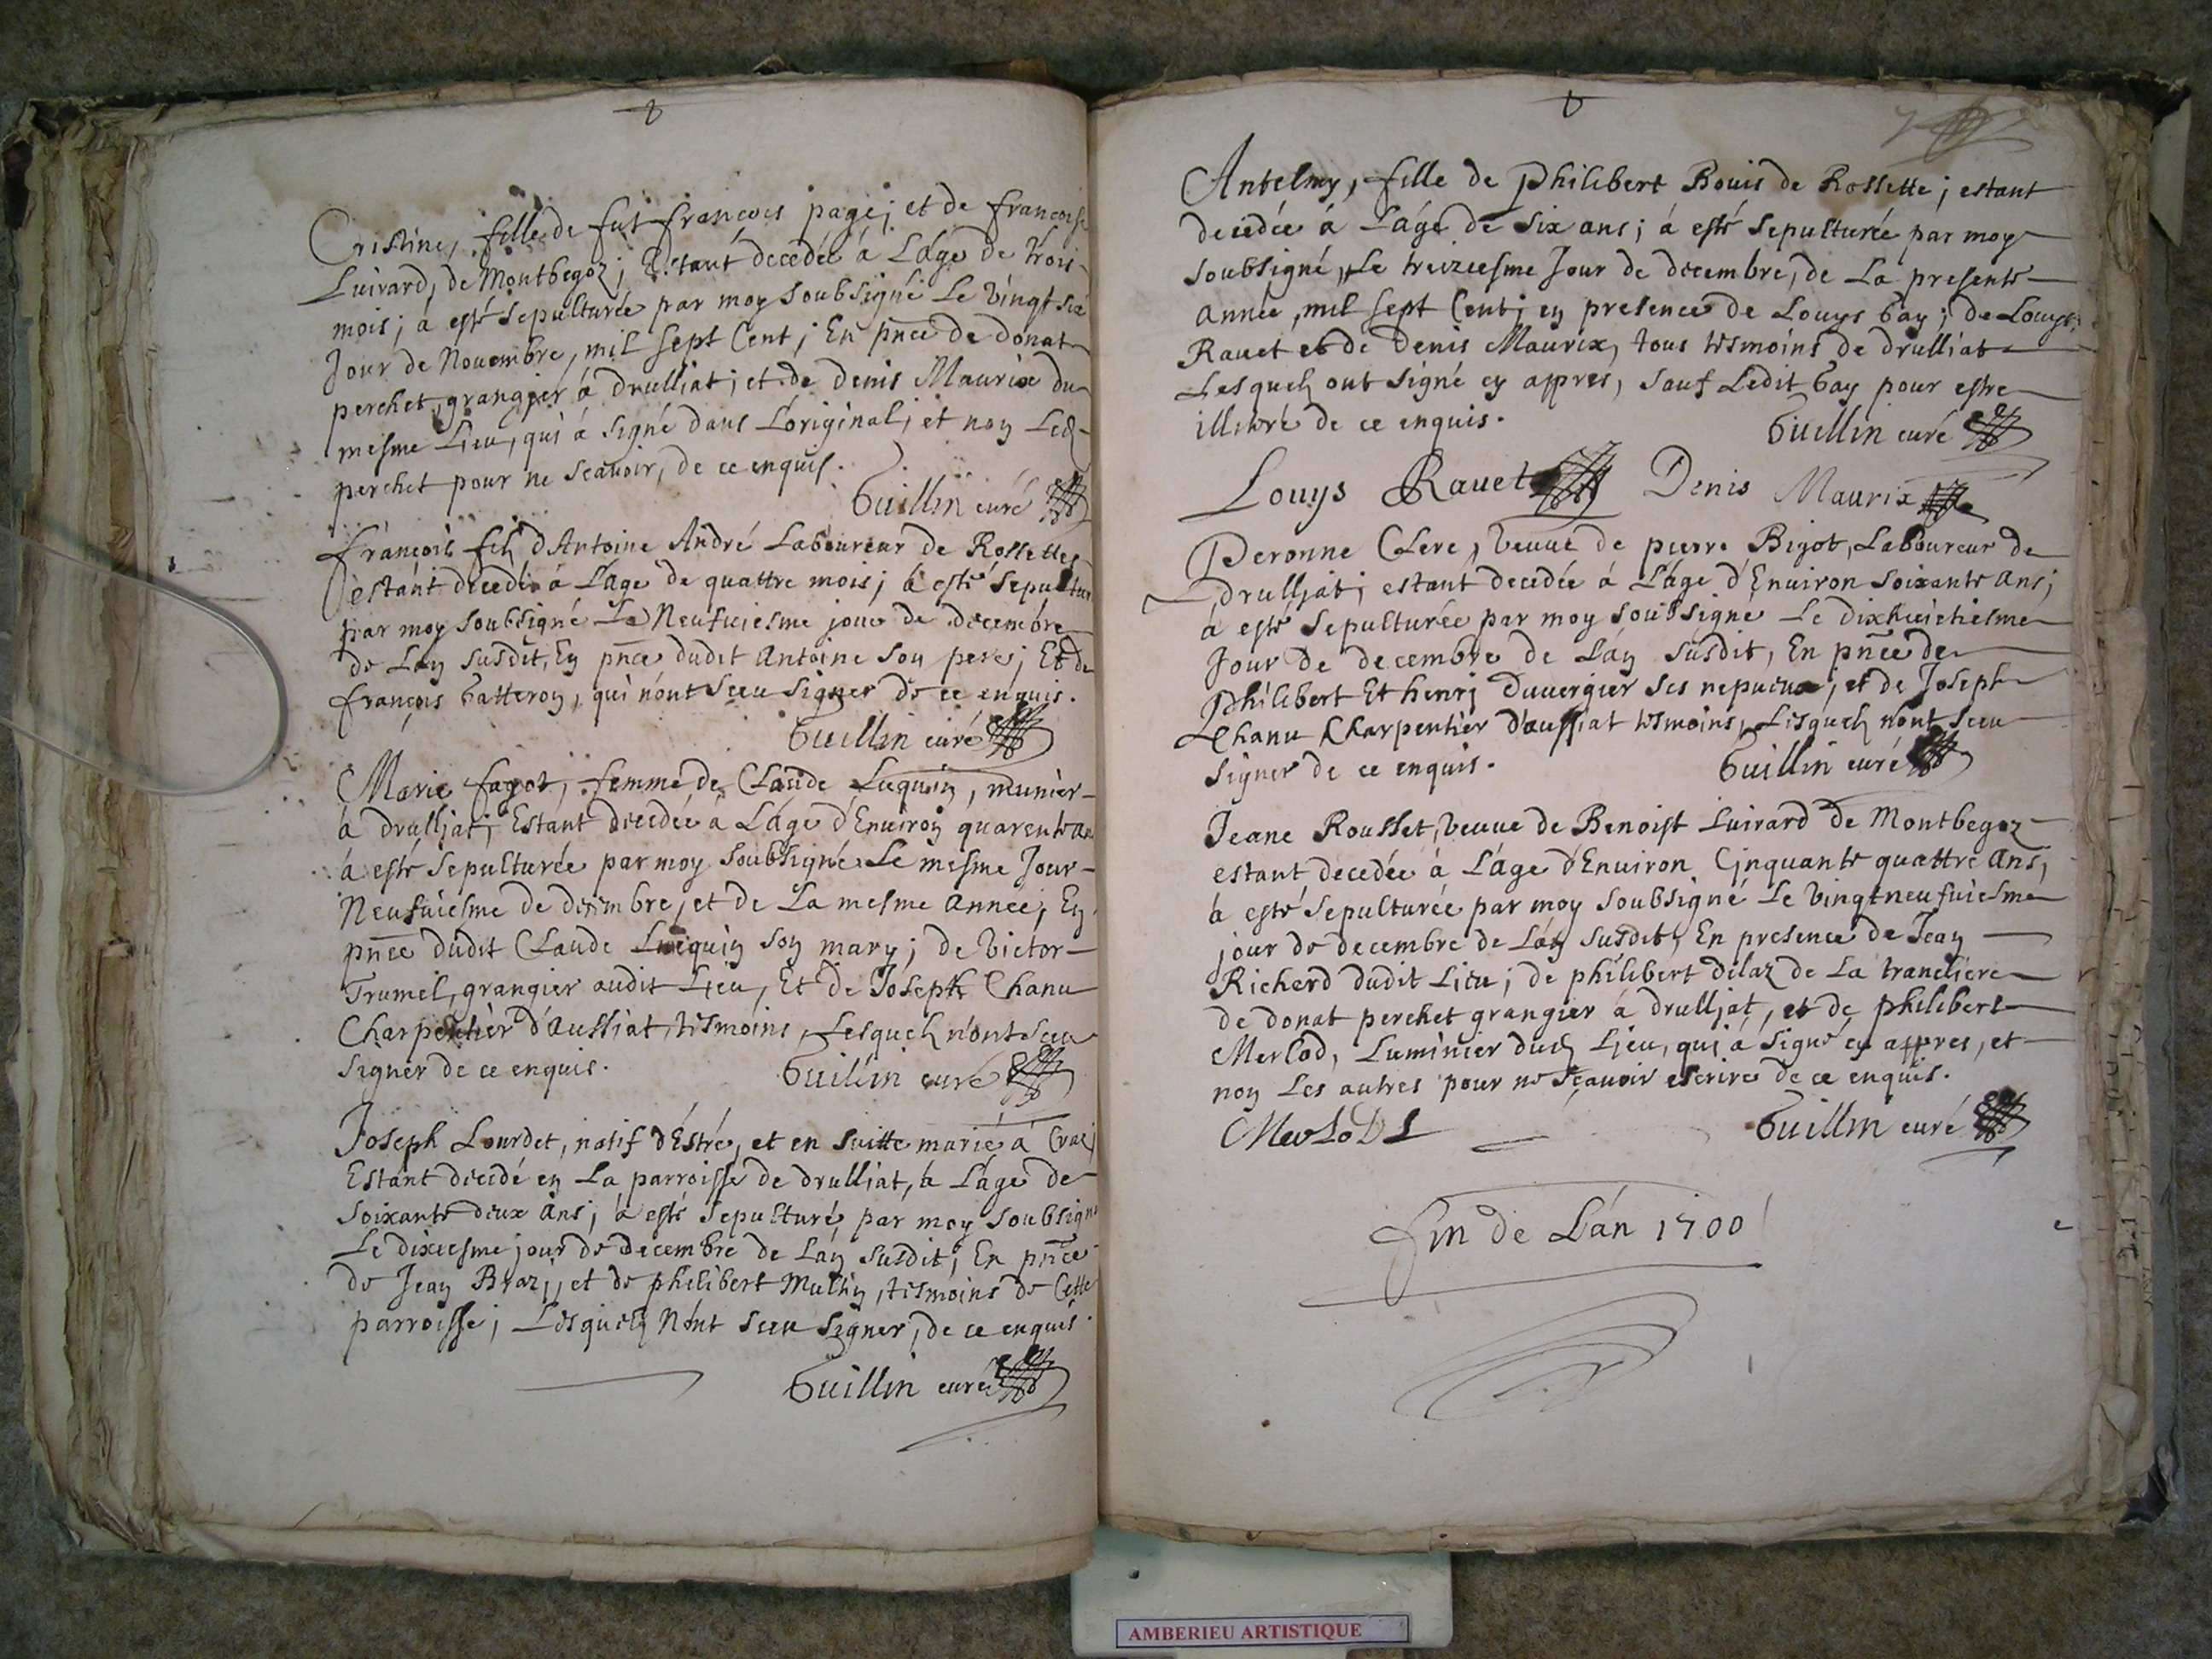 Cristine, fille de fut françois page; et de françoise
Luirard, de Montbegoz; Estant decedée á L'áge de trois
mois; a esté sepulturée par moy soubsigné Le vingt six
Jour de Novembre, mil sept Cent; En pnce de donat
perchet, grangier á drulliat; et de denis Maurix du
mesme Lieu, qui á signé dans L'original; et noy Led
perchet pour ne scavoir, de ce enquis.
Guillin curé
françois fils d'Antoine André Laboureur de Rossettes
estant decedé á L'áge de quattre mois; á esté sepultur
par moy soubsigné Le Neufuiesme jour de decembre
de L'ay susdit, Ey pnce dudit Antoine soy pere; Et de
françois Gatteroy, qui n'ont sceu signer de ce enquis.
Guillin curé
Marie fagot, femme de Claude Luquiy, munier
á drulliat; Estant decedée á L'áge d'Enuiroy quarente an
á esté sepulturée par moy soubsigné Le mesme Jour
Neufuiesme de decembre, et de La mesme Année; Ey
pnce dudit Claude Luquiy soy mary; de victor
Trumel, grangier audit Lieu, Et de Joseph Chanu
Charpentier d'Aussiat, tesmoins, Lesquels n'ont sceu
signer de ce enquis.
Guillin curé
Joseph Lourdet, natif d'Estré, et en suitte marié á
Estant decedé ey La parroisse de drulliat, á L'áge de
soixante deux Ans; á esté sepulturé par moy soubsigné
Le dixiesme jour de decembre de L'ay susdit; En pnce
de Jeay Brazj, et de philibert Mulliy, tesmoins de Cette
parroisse; Lesquels N'ont sceu signer, de ce enquis.
Guillin curé
Antelmy, fille de Philibert Bouis de Rossette; estant
decedée á L'áge de six ans; á esté sepulturée par moy
soubsigné, Le treiziesme Jour de decembre, de La presente
année, mil sept Cent; ey presence de Louys Gay; de Louys
Rauet et de Denis Maurix, tous tesmoins de drulliat
Lesquels ont signé cy appres, sauf Ledit Gay pour estre
illitéré de ce enquis.
Guillin curé
Louys Rauet Denis Maurix
Peronne Clerc, veuue de pierre Bigot, Laboureur de
drulliat; estant decedée á L'áge d'Enuiron soixante ans;
á esté sepulturée par moy soubsigné Le dixhuictiesme
Jour de decembre de L'áy susdit, En pnce de
Philibert Et henri Duuergier ses nepueux; et de Joseph
Chanu Charpentier d'aussiat tesmoins, Lesquels n'ont sceu
signer de ce enquis.
Guillin curé
Jeane Rousset, veuue de Benoist Luirard de Montbegoz
estant decedée á L'áge d'Enuiron Cinquante quattre Ans;
á esté sepulturée par moy soubsigné Le vingtneufuiesme
jour de decembre de L'áy susdit, En presence de Jeay
Richerd dudit Lieu; de philibert delaz de La trancliere
de donat perchet grangier á drulliat, et de philibert
Merlod, Luminier dud Lieu, qui á signé cy appres, et
noy Les autres pour ne sçauoir escrire de ce enquis.
MerLoD
Guillin curé
fin de L'án 1700
AMBERIEU ARTISTIQUE